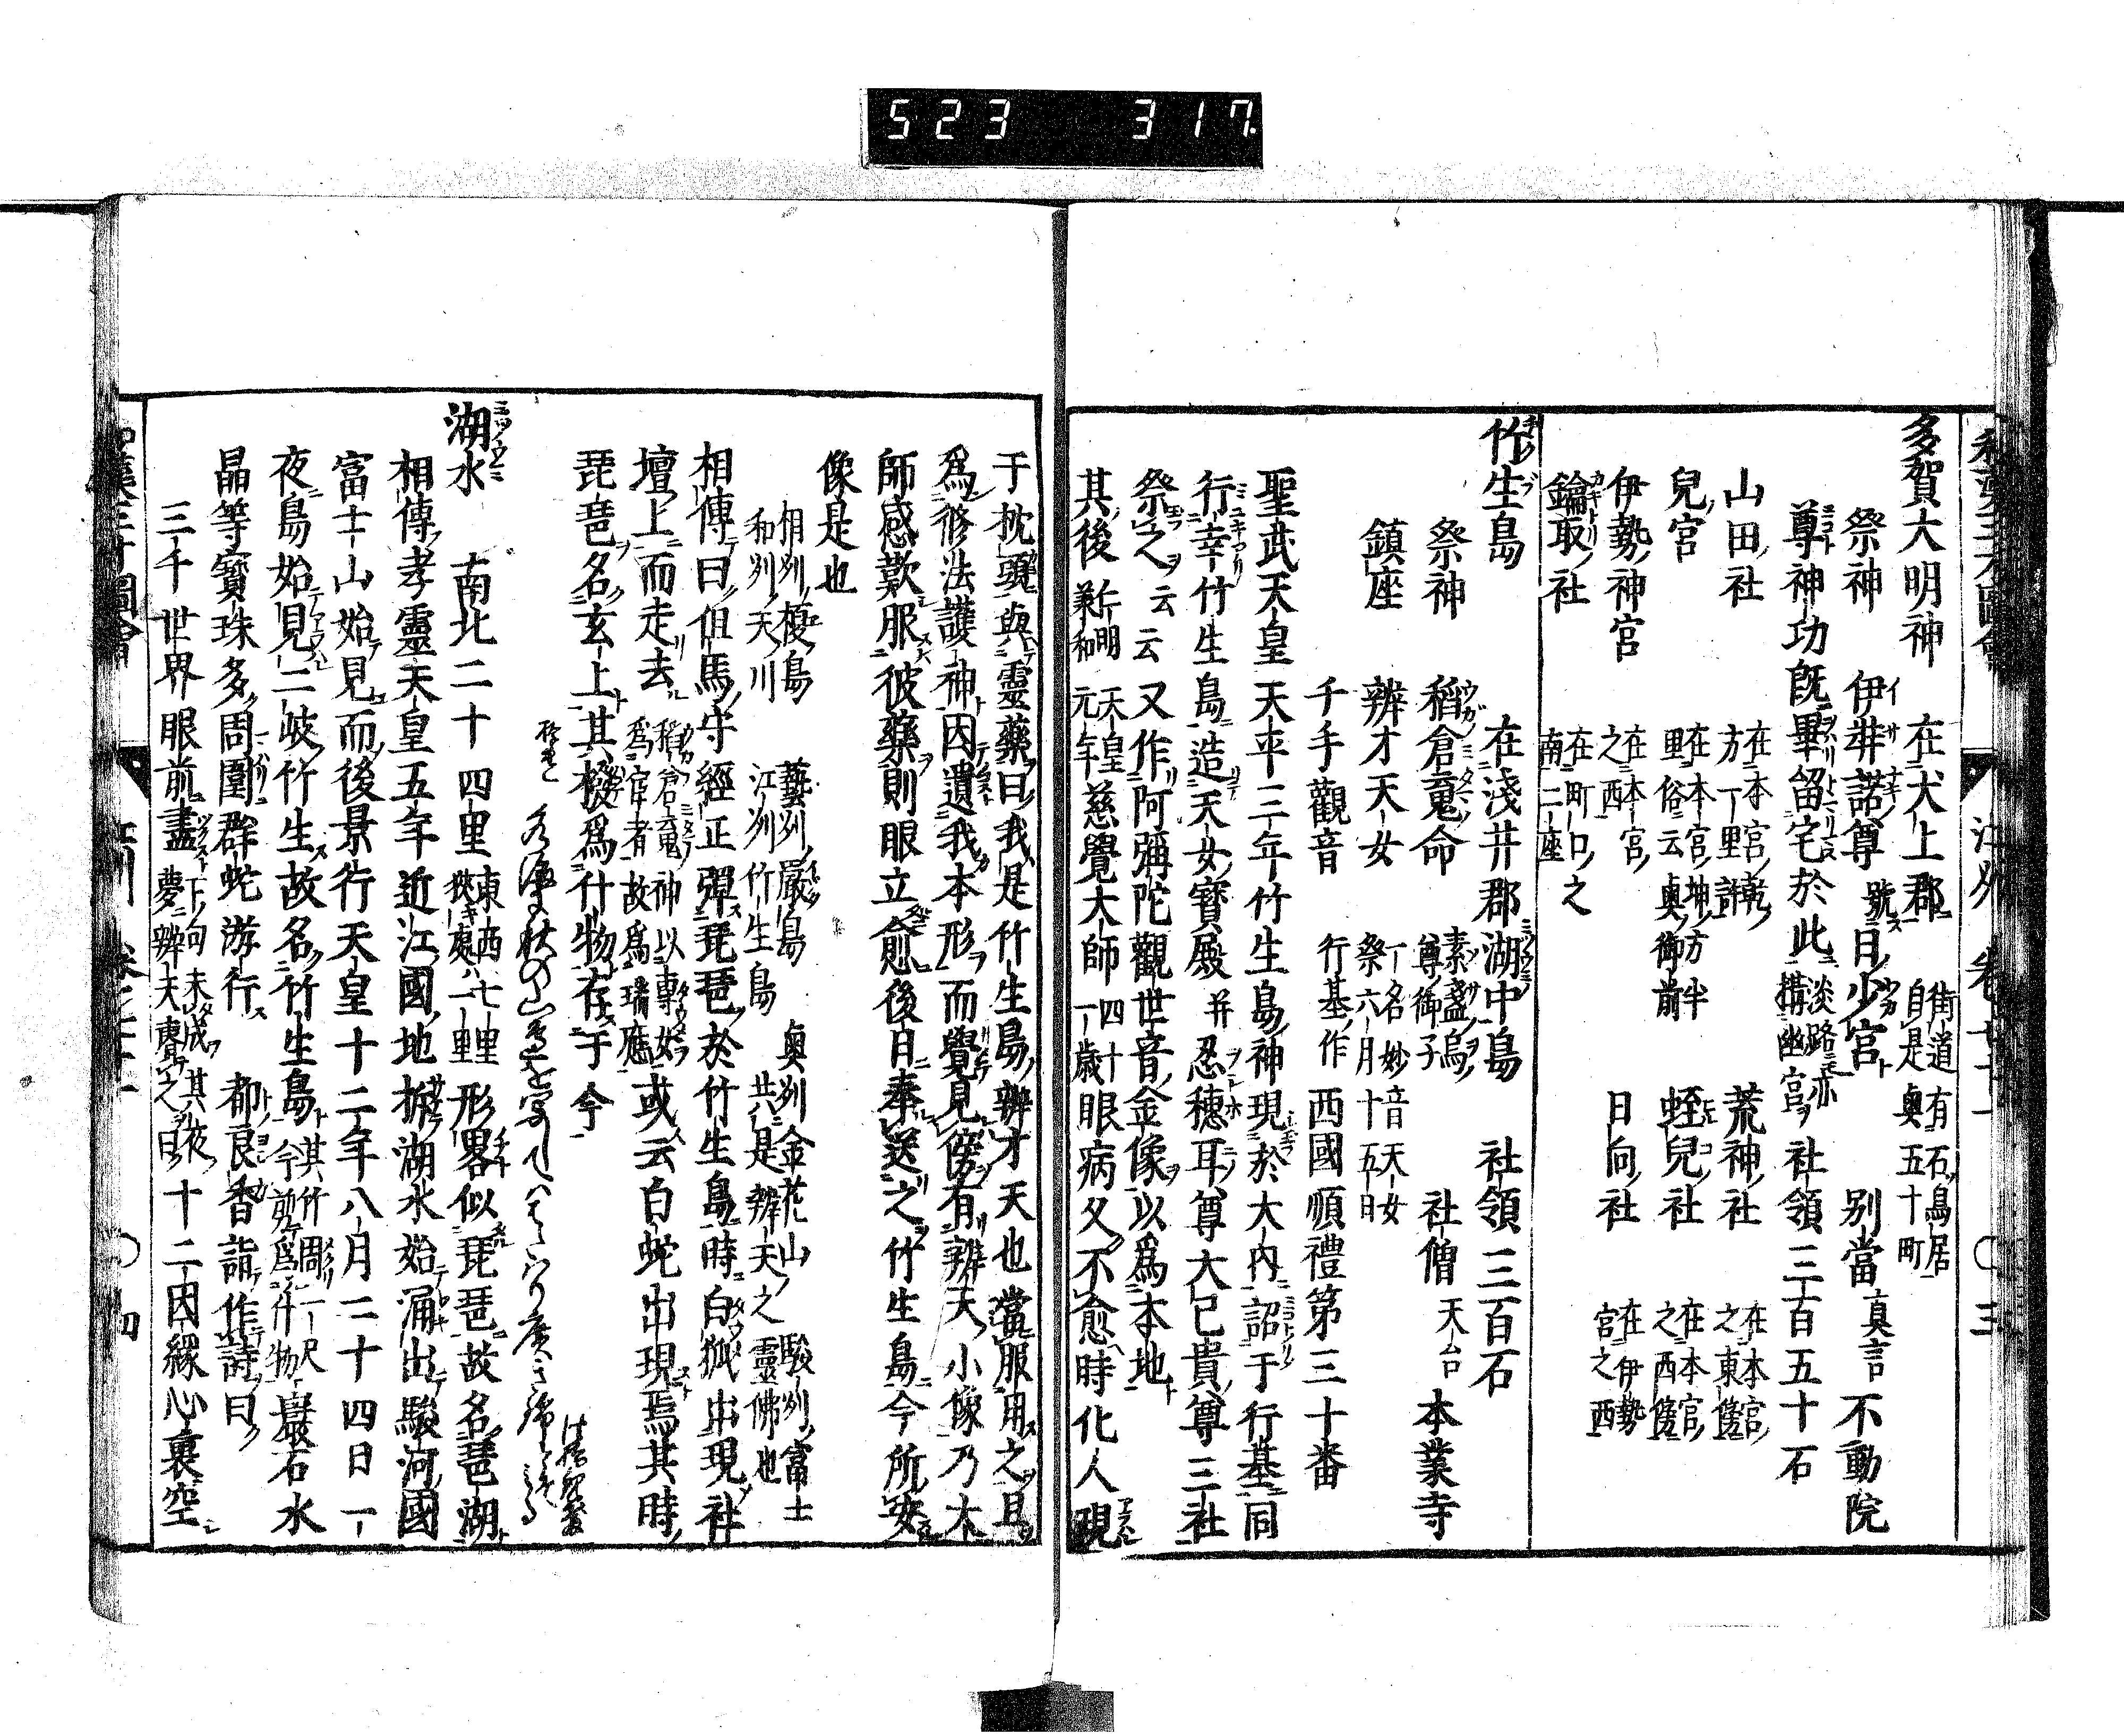 523 317
多賀大明神 在犬上郡 街道有石鳥居自是奥五十町
祭神 伊弉諾尊 號日少宮 別當 真言 不動院
尊神功既畢留宅於此 淡路亦構幽宮 社領三百五十石
山田社 在本宮乾方一里許 荒神社 在本宮之東傍
兒宮 在本宮坤方半里俗云奥御前 蛭兒社 在本宮之西傍
伊勢神宮 在本宮之西 日向社 在伊勢宮之西
鑰取社 在町口之南二座
竹生島 在淺井郡湖中島 社領三百石
祭神 稻倉䰠命 素盞烏尊御子 社僧 天台 本業寺
鎮座 辨才天女 一名妙音天女祭六月十五日
千手觀音 行基作 西國順禮第三十番
聖武天皇天平三年竹生島神現於大内詔于行基同
行幸竹生島造天女寳殿 并忍穗耳尊大已貴尊三社
祭之云云又作阿彌陀觀世音金像以爲本地
其後 仁明天皇 元年慈覺大師 四十一歳 眼病久不愈時化人現
于枕頭與靈藥曰我是竹生島辨才天也當服用之且
爲修法護神因遺我本形而覺見傍有辨天小像乃大
師感歎服彼藥則眼立愈後日奉送之竹生島今所安
像是也
相州榎島 藝州嚴島 奥州金花山 駿州富士
和州天川 江州竹生島 共是辨天之靈佛也
相傳曰但馬守經正彈琵琶於竹生島時白狐出現社
壇上而走去 稻倉䰠神以專女爲官者故爲瑞應 或云白蛇出現焉其時
琵琶名玄上其撥爲什物存于今
湖水 南北二十四里 東西七里狹處八一里 形畧似琵琶故名琶湖
相傳孝靈天皇五年近江國地拆湖水始涌出駿河國
富士山始見而後景行天皇十二年八月二十四日一
夜島始見二岐竹生故名竹生島 其竹周一尺今剪爲什物 巖石水
晶等寳珠多周圍群蛇游行 都良香詣作詩曰
三千世界眼前盡 下句未成其夜夢辨天賽之曰 十二因緣心裏空